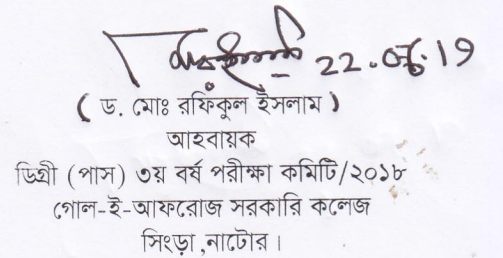 22.০৮.19
( ড. মোঃ রফিকুল ইসলাম )
আহবায়ক
ডিগ্রী (পাস) ৩য় বর্ষ পরীক্ষা কমিটি/২০১৮
গোল-ই-আফরোজ সরকারি কলেজ
সিংড়া ,নাটোর।